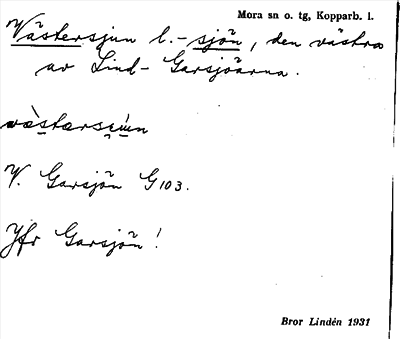 Mora sn o. tg, Kopparb. l.
Västersjun l. -sjön, den västra
av Lind- Garsjöarna.
V. Garsjön G103.
Jfr Garsjön!
Bror Lindén 1931